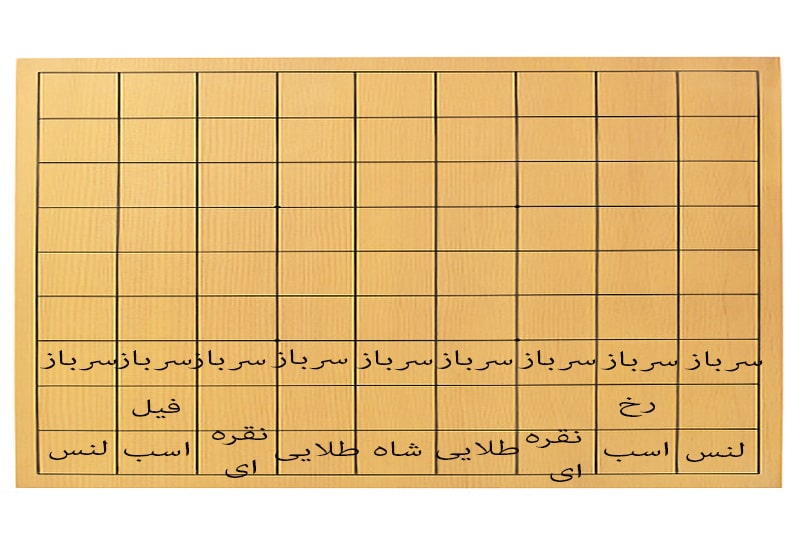 سرباز سرباز سرباز سرباز سرباز سرباز سرباز سرباز سرباز
رخ فیل
لنس اسب نقره ای طلایی شاه طلایی نقره ای اسب لنس